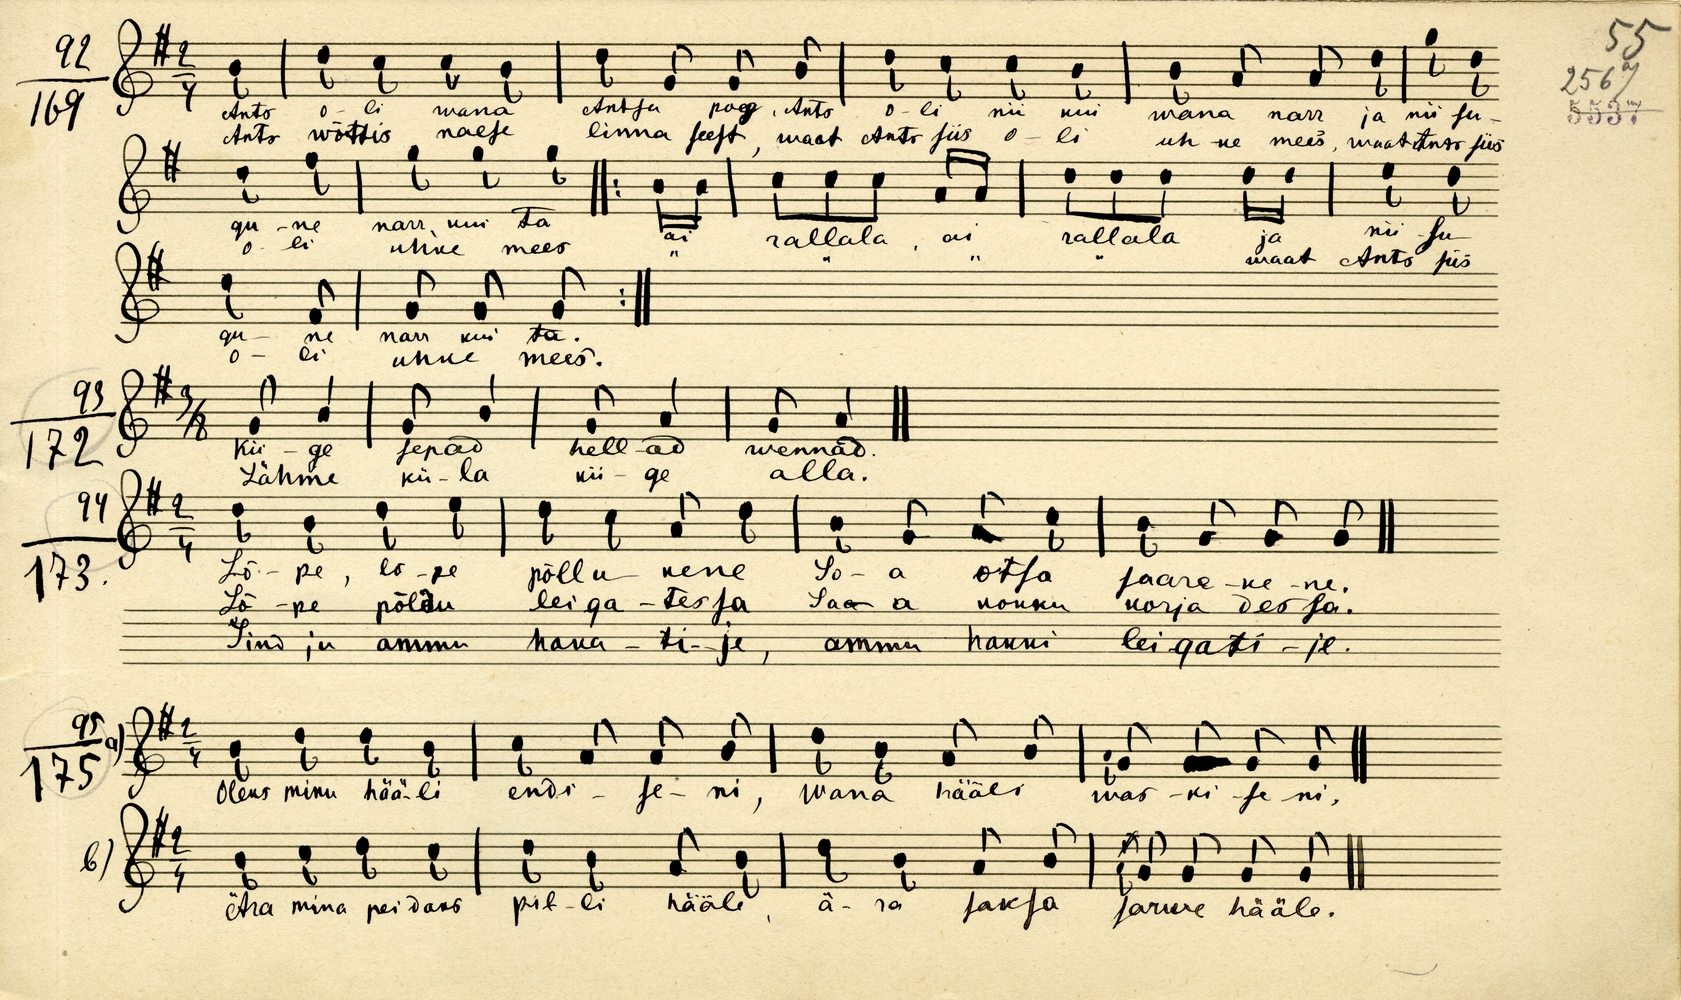 55
2567
5537
92
169
2
4
Ants o-li wana Antsu poeg, Ants o-li nii kui wana narr ja nii su-
Ants wõttis naese linna seest, waat Ants siis o-li uh-ke mees, waat Ants siis
gu-ne narr, kui ta ai rallala, ai rallala ja nii su
o-li uhke mees " " " " waat Ants siis
gu-ne narr kui ta.
o-li uhke mees.
93
172
3/8
Kii-ge sepad hell-ad wennad.
Lähme kü-la kii-ge alla.
94
173.
2
4
Lõ-pe, lõ-pe põllu-kene So-a otsa saare-ke-ne.
Lõ-pe põldu leiga-tessa Saa-a kokku korja dessa.
Sind ju ammu haka-ti-je, ammu hakki leigati-je.
95
175
a)
2
4
Oleks minu hää-li endi-se-ni, wana hääli was-ki-se-ni,
b)
2
4
Ära mina peidaks pil-li hääle, ä-ra saksa sarwe hääle.